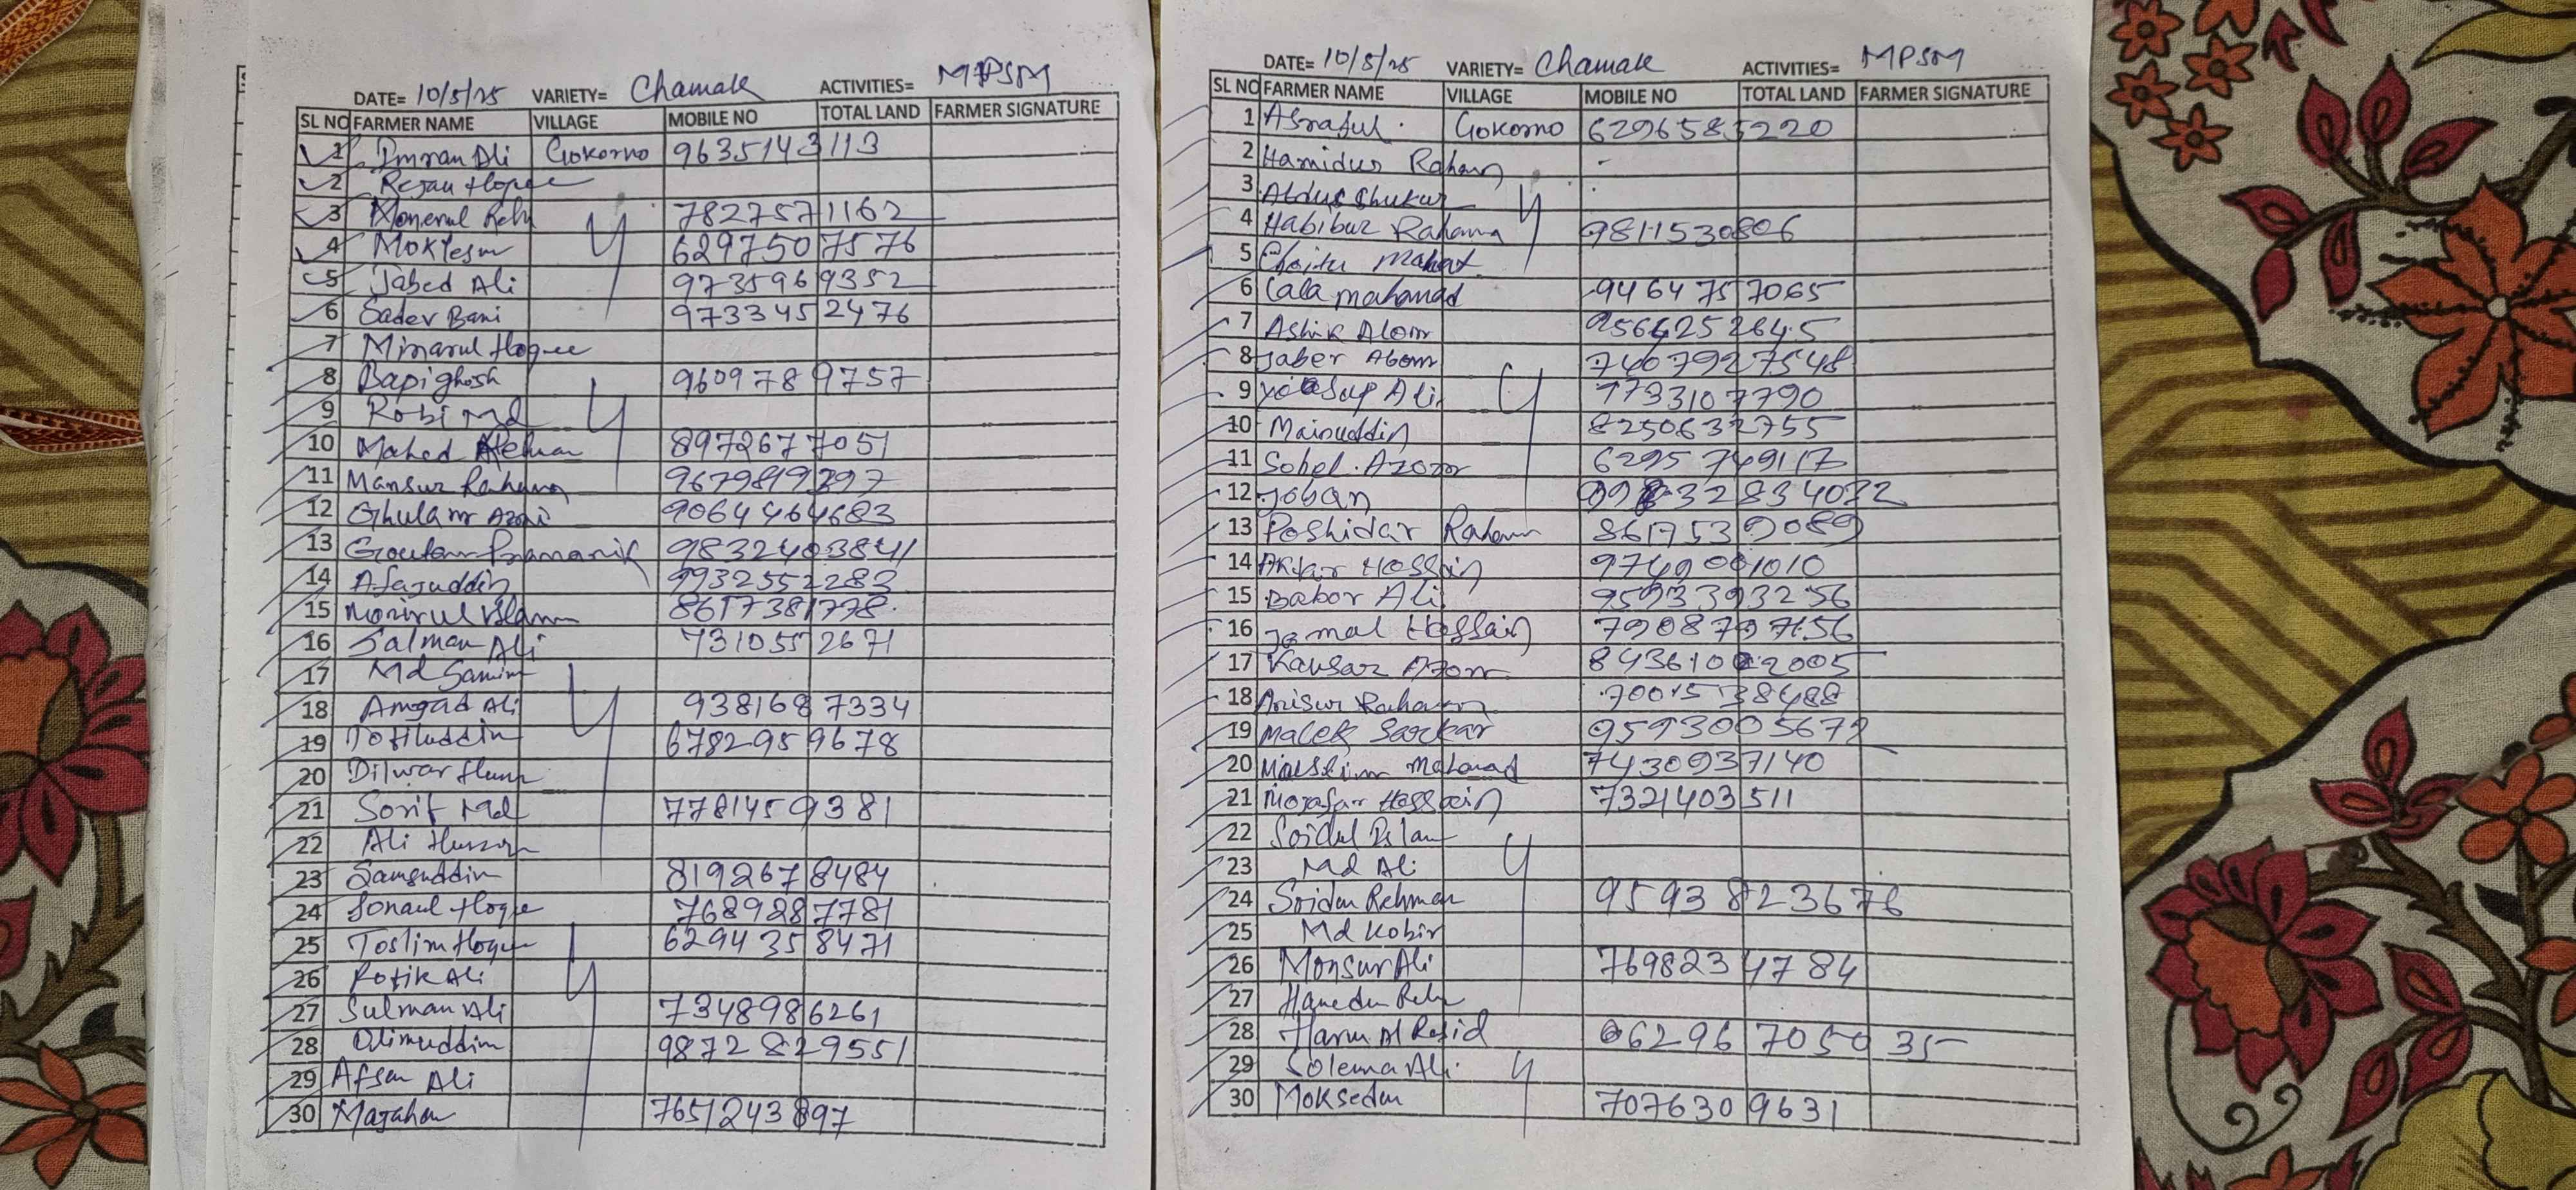 DATE= 10/5/25 VARIETY= Chamak ACTIVITIES= MPSM
SL NO FARMER NAME VILLAGE MOBILE NO TOTAL LAND FARMER SIGNATURE
1 Imran Ali Gokorno 9635143113
2 Rejau Hoque
3 Monerul Reh 7827571162
4 Moklesur 6297507576
5 Jabed Ali 9735969352
6 Sader Bani 9733452476
7 Minarul Hoque
8 Bapi ghosh 9609789757
9 Robi Md
10 Mahed 8972677051
11 Mansur Rahman 9679819397
12 Ghulam Azom 9064464683
13 Goutam Pramanik 9832403841
14 Afajuddin 9932552283
15 Monirul Islam 8617381778
16 Salman Ali 7310552671
17 Md Samim
18 Amjad Ali 9381687334
19 Tofiluddin 6782959678
20 Dilwar
21 Sorif Md 7781459381
22 Ali
23 Samsuddin 8192678484
24 Jonaul Hoque 7689287781
25 Toslim Hoque 6294358471
26 Rofik Ali
27 Sulman Ali 7348986261
28 Olimuddin 9872829551
29 Afsar Ali
30 Majahar 7651243897
DATE= 10/5/25 VARIETY= Chamak ACTIVITIES= MPSM
SL NO FARMER NAME VILLAGE MOBILE NO TOTAL LAND FARMER SIGNATURE
1 Asraful Gokorno 6296585220
2 Hamidur Raham
3 Abdus Shukur
4 Habibur Rahama 9811530806
5 Mahat
6 Lala mahamad 9464757065
7 Ashik Alom 9564252645
8 Jaber Alom 7407927548
9 Ali 7733107790
10 Mainuddin 8250632755
11 Sohel Azom 6295749117
12 Joban
13 Poshidar Raham 8617539089
14 Aktar Hossain 9749001010
15 Babor Ali 9593393256
16 Jamal Hossain 7908797156
17 Kausar Azom
18 Anisur Rahaman 7001538488
19 Malek Sarkar 9593005672
20 Mahamad 7430937140
21 Mojafar Hossain 7321403511
22 Soidul Islam
23 Md Ali
24 Soidur Rehman 9593823676
25 Md Kobir
26 Monsur Ali 7698234784
27
28 Harun Al Rosid 06296705035
29 Solema Ali
30 Moksedur 7076309631